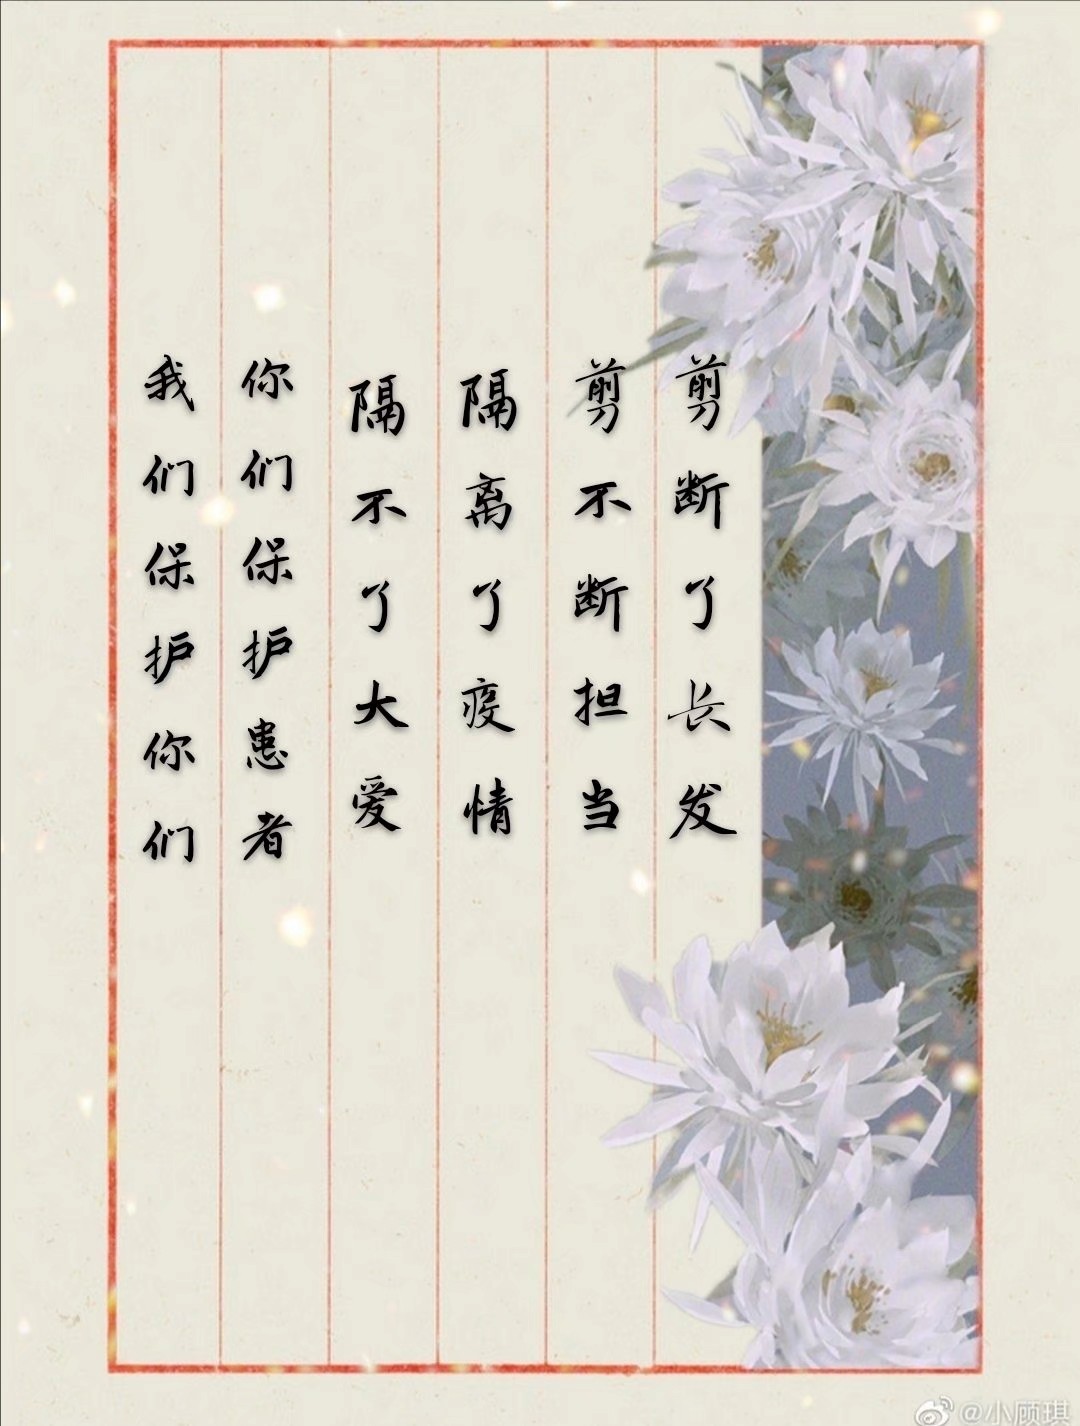 剪断了长发
剪不断担当
隔离了疫情
隔不了大爱
你们保护患者
我们保护你们
@小顾琪